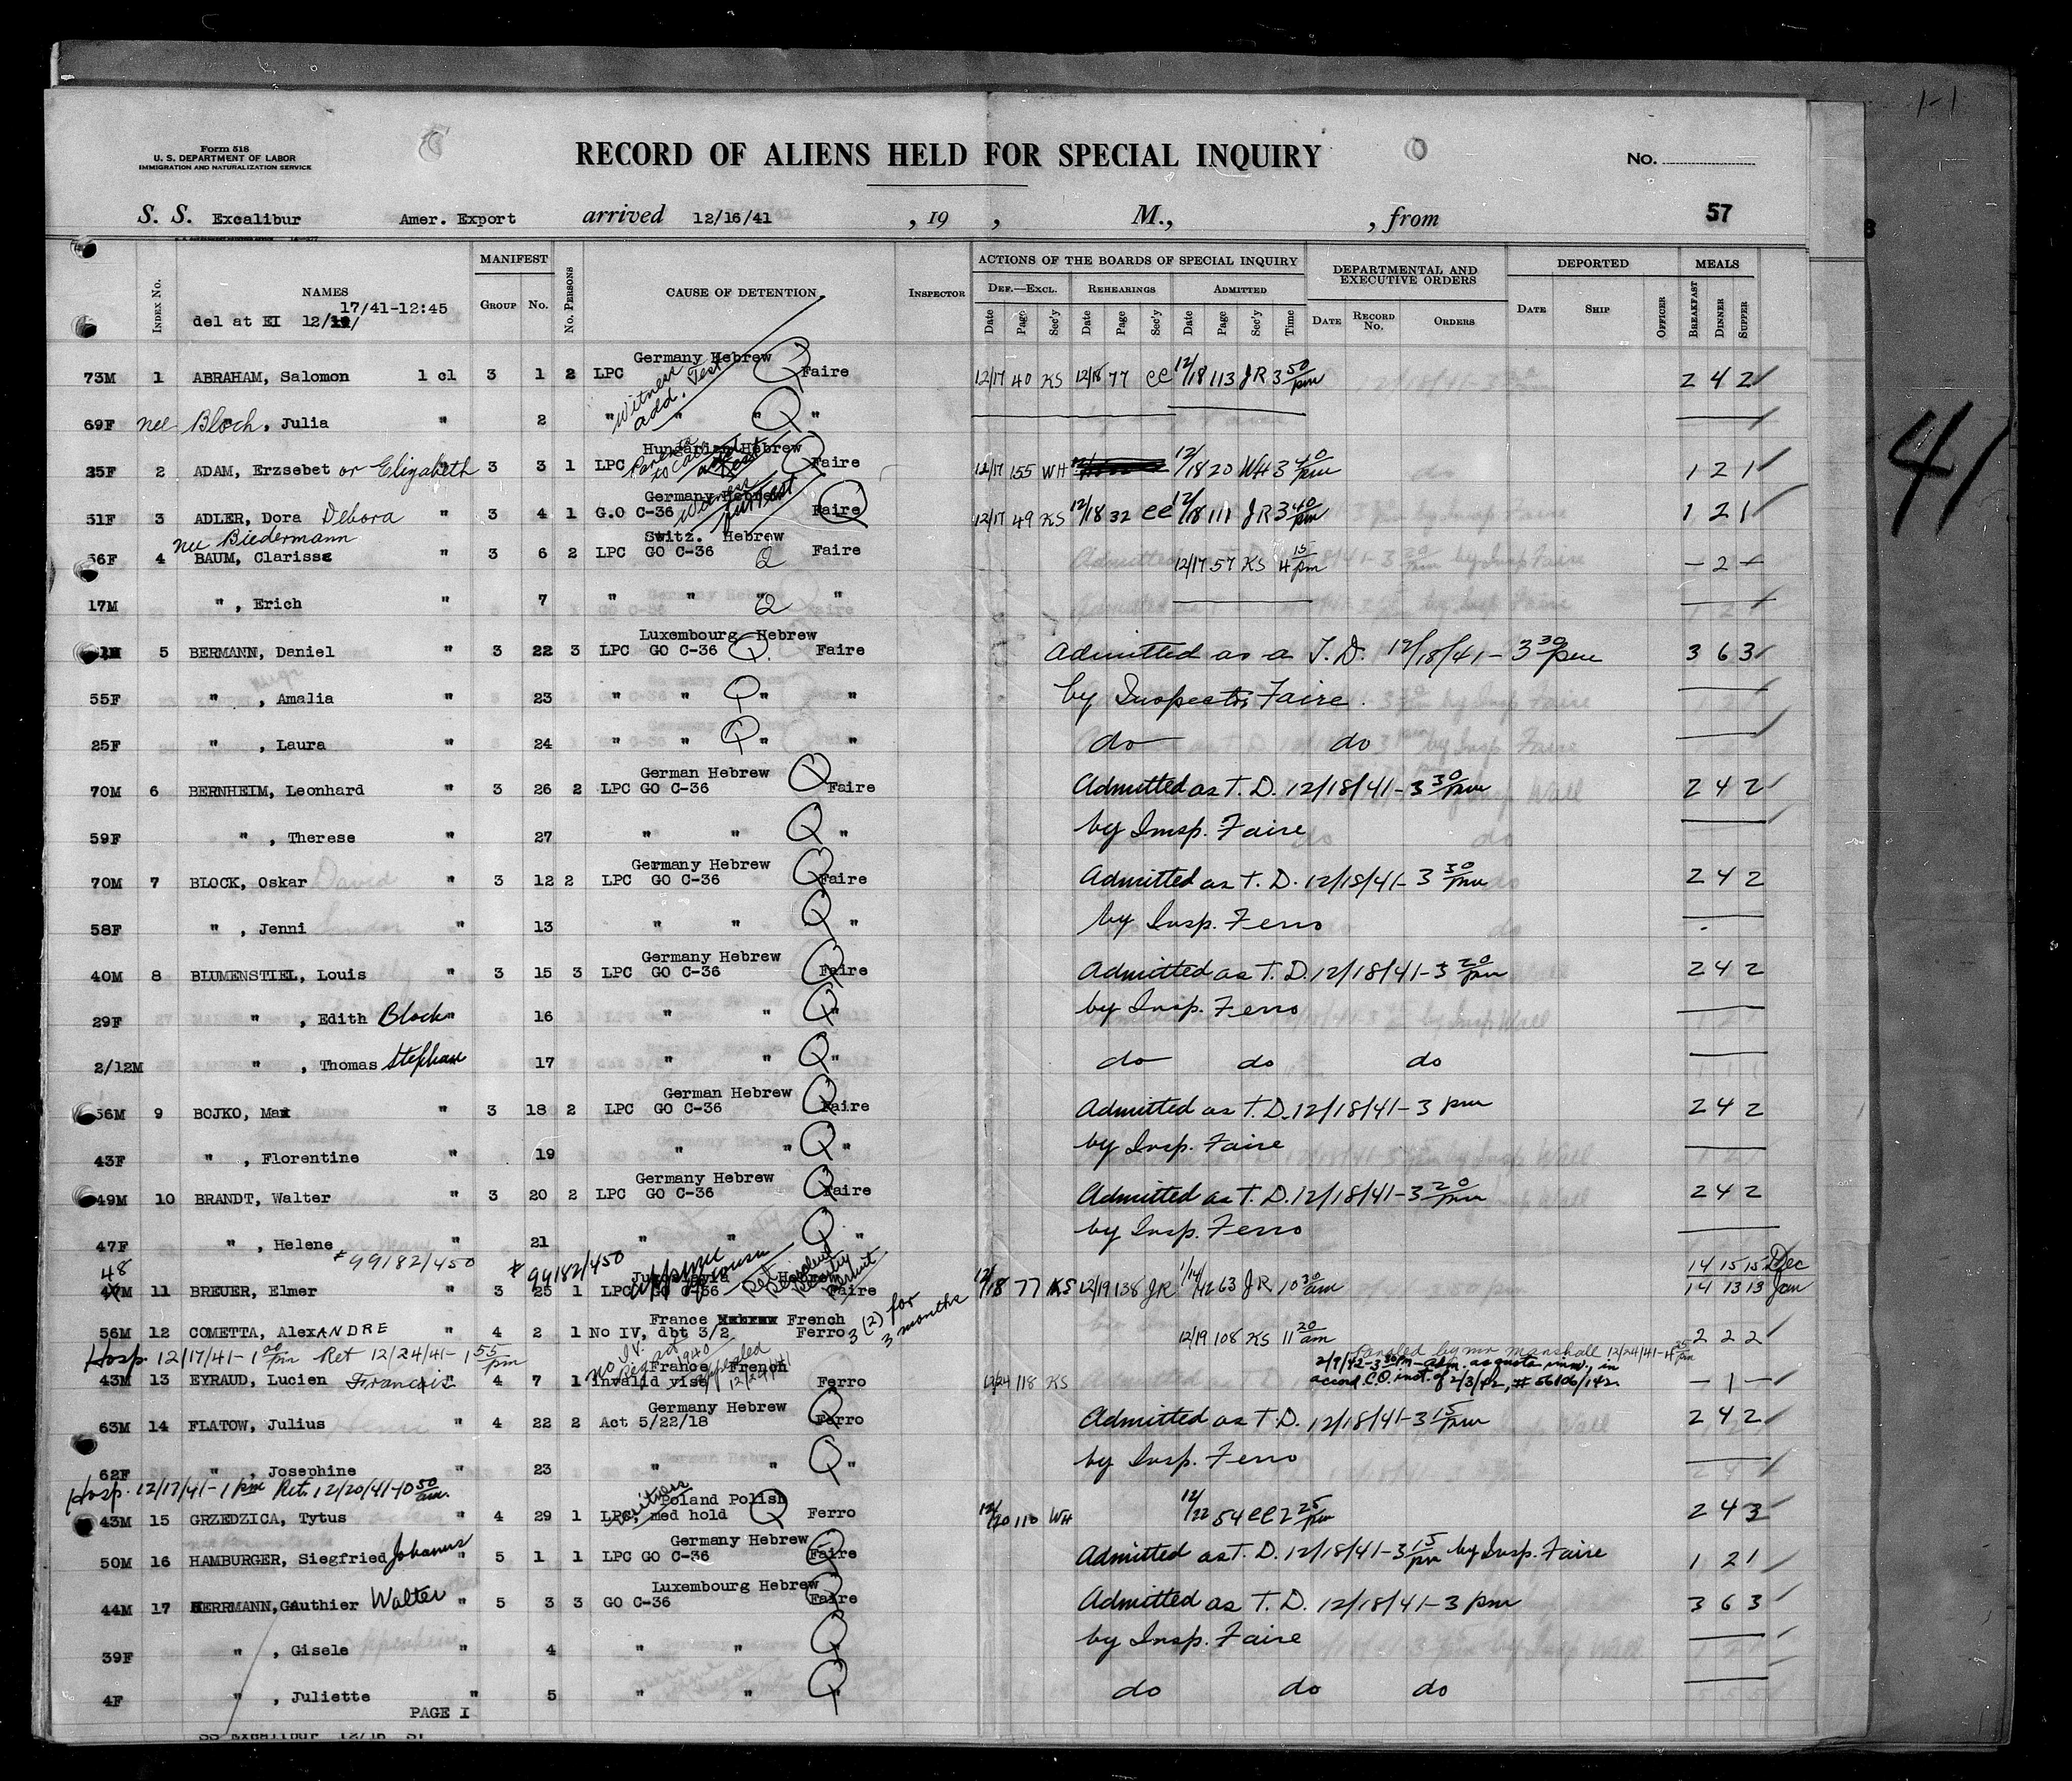 1-1
Form 518
U. S. DEPARTMENT OF LABOR
IMMIGRATION AND NATURALIZATION SERVICE
RECORD OF ALIENS HELD FOR SPECIAL INQUIRY
No.
S. S. Excalibur Amer. Export arrived 12/16/41 , 19 , M., , from 57
41
Index No. NAMES MANIFEST Group No. No. Persons CAUSE OF DETENTION. Inspector
ACTIONS OF THE BOARDS OF SPECIAL INQUIRY DEPARTMENTAL AND EXECUTIVE ORDERS DEPORTED MEALS
Def.—Excl. Rehearings Admitted
Date Page Sec'y Date Page Sec'y Date Page Sec'y Time Date Record No. Orders Date Ship Officer Breakfast Dinner Supper
17/41-12:45
del at EI 12/
Germany Hebrew
73M 1 ABRAHAM, Salomon 1 cl 3 1 2 LPC Q Faire 12/17 40 KS 12/18 77 CC 12/18 113 JR 3 50/pm 2 4 2
Witness add. Test
69F nee Bloch, Julia " 2 " " " Q "
Hungarian Hebrew
25F 2 ADAM, Erzsebet or Elizabeth " 3 3 1 LPC Faire 12/17 155 WH 12/18 20 WH 3 40/pm 1 2 1
Germany Hebrew
51F 3 ADLER, Dora Debora " 3 4 1 G.O C-36 Faire 12/17 49 KS 12/18 32 CC 12/18 111 JR 3 40/pm 1 2 1
nee Biedermann
Switz. Hebrew
56F 4 BAUM, Clarisse " 3 6 2 LPC GO C-36 Q Faire 12/17 57 KS 4 15/pm - 2 -
17M ", Erich " 7 " " " Q "
Luxembourg Hebrew
5 BERMANN, Daniel " 3 22 3 LPC GO C-36 Q Faire Admitted as a T.D. 12/18/41- 3 30/pm 3 6 3
55F " , Amalia " 23 " " Q " " by Inspector Faire.
25F " , Laura " 24 " " Q " " do do
German Hebrew
70M 6 BERNHEIM, Leonhard " 3 26 2 LPC GO C-36 Q Faire Admitted as T. D. 12/18/41-3 30/pm 2 4 2
59F " , Therese " 27 " " Q " by Insp. Faire
Germany Hebrew
70M 7 BLOCK, Oskar " 3 12 2 LPC GO C-36 Q Faire Admitted as T. D. 12/18/41- 3 30/pm 2 4 2
58F " , Jenni " 13 " " Q " by Insp. Ferro
Germany Hebrew
40M 8 BLUMENSTIEL, Louis " 3 15 3 LPC GO C-36 Q Faire Admitted as T. D. 12/18/41-3 20/pm 2 4 2
29F " , Edith Bloch " 16 " " Q " by Insp. Ferro
2/12M " , Thomas Stephan 17 " " Q " do do do
German Hebrew
56M 9 BOJKO, Max " 3 18 2 LPC GO C-36 Q Faire Admitted as T. D. 12/18/41-3 pm 2 4 2
43F " , Florentine " 19 " " Q " by Insp. Faire
Germany Hebrew
49M 10 BRANDT, Walter " 3 20 2 LPC GO C-36 Q Faire Admitted as T. D. 12/18/41-3 20/pm 2 4 2
47F " , Helene " 21 " " Q " by Insp. Ferro
# 99182/450 # 99182/450 14 15 15 Dec
48 Hebrew
11 BREUER, Elmer " 3 25 1 LPC GO C-36 Faire 12/18 77 KS 12/19 138 JR 1/14/42 63 JR 10 30/am 14 13 13 Jan
France French
56M 12 COMETTA, AlexANDRE " 4 2 1 No IV, dbt 3/2 Ferro 3 (2) for 3 months 12/19 108 KS 11 20/am 2 2 2
Hosp. 12/17/41-1 00/pm Ret 12/24/41-1 55/pm
France French
2/9/42-3 30/pm-adm. as quota imm., in
43M 13 EYRAUD, Lucien Francis " 4 7 1 invalid visa Ferro 12/24 118 KS accord. C.O. inst. of 2/3/42, # 56106/142. - 1 -
appealed 12/29/41
Germany Hebrew
63M 14 FLATOW, Julius " 4 22 2 Act 5/22/18 Q Ferro Admitted as T. D. 12/18/41-3 15/pm 2 4 2
62F " , Josephine " 23 " " Q " by Insp. Ferro
Hosp. 12/17/41-1 pm Ret. 12/20/41-10 50/am.
Poland Polish
43M 15 GRZEDZICA, Tytus " 4 29 1 LPC, med hold Q Ferro 12/20 110 WH 12/22 54 CC 2 25/pm 2 4 3
Germany Hebrew
50M 16 HAMBURGER, Siegfried Johanns " 5 1 1 LPC GO C-36 Q Faire Admitted as T. D. 12/18/41-3 15/pm by Insp. Faire 1 2 1
Luxembourg Hebrew
44M 17 HERRMANN, Gauthier Walter " 5 3 3 GO C-36 Q Faire Admitted as T. D. 12/18/41-3 pm 3 6 3
39F " , Gisele " 4 " " Q " by Insp. Faire
4F " , Juliette " 5 " " Q " do do do
PAGE I